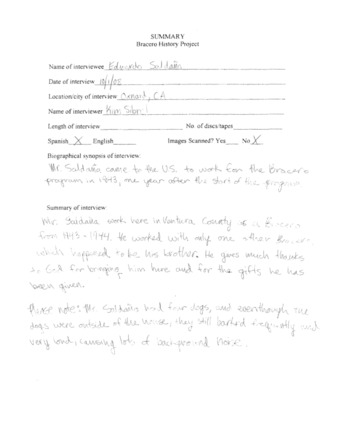 SUMMARY
Bracero History Project
Name of interviewee Eduardo Saldaña
Date of interview
Location/city of interview Oxnard, CA
Name of interviewer Kim
Length of interview No. of discs/tapes
Spanish X English Images Scanned? Yes No X
Biographical synopsis of interview:
Mr. Saldaña came to the U.S. to work for the Bracero
program in 1943, one year after the start of the program
Summary of interview:
Mr. Saldaña work here in Ventura County as a Bracero
from 1943-1944. He worked with only one other Bracero,
which happened to be his brother. He gives much thanks
to God for bringing him here and for the gifts he has
been given.
Please note: Mr. Saldaña had four dogs, and eventhough the
dogs were outside of the house, they still barked frequently and
very loud, causing lots of background noise.